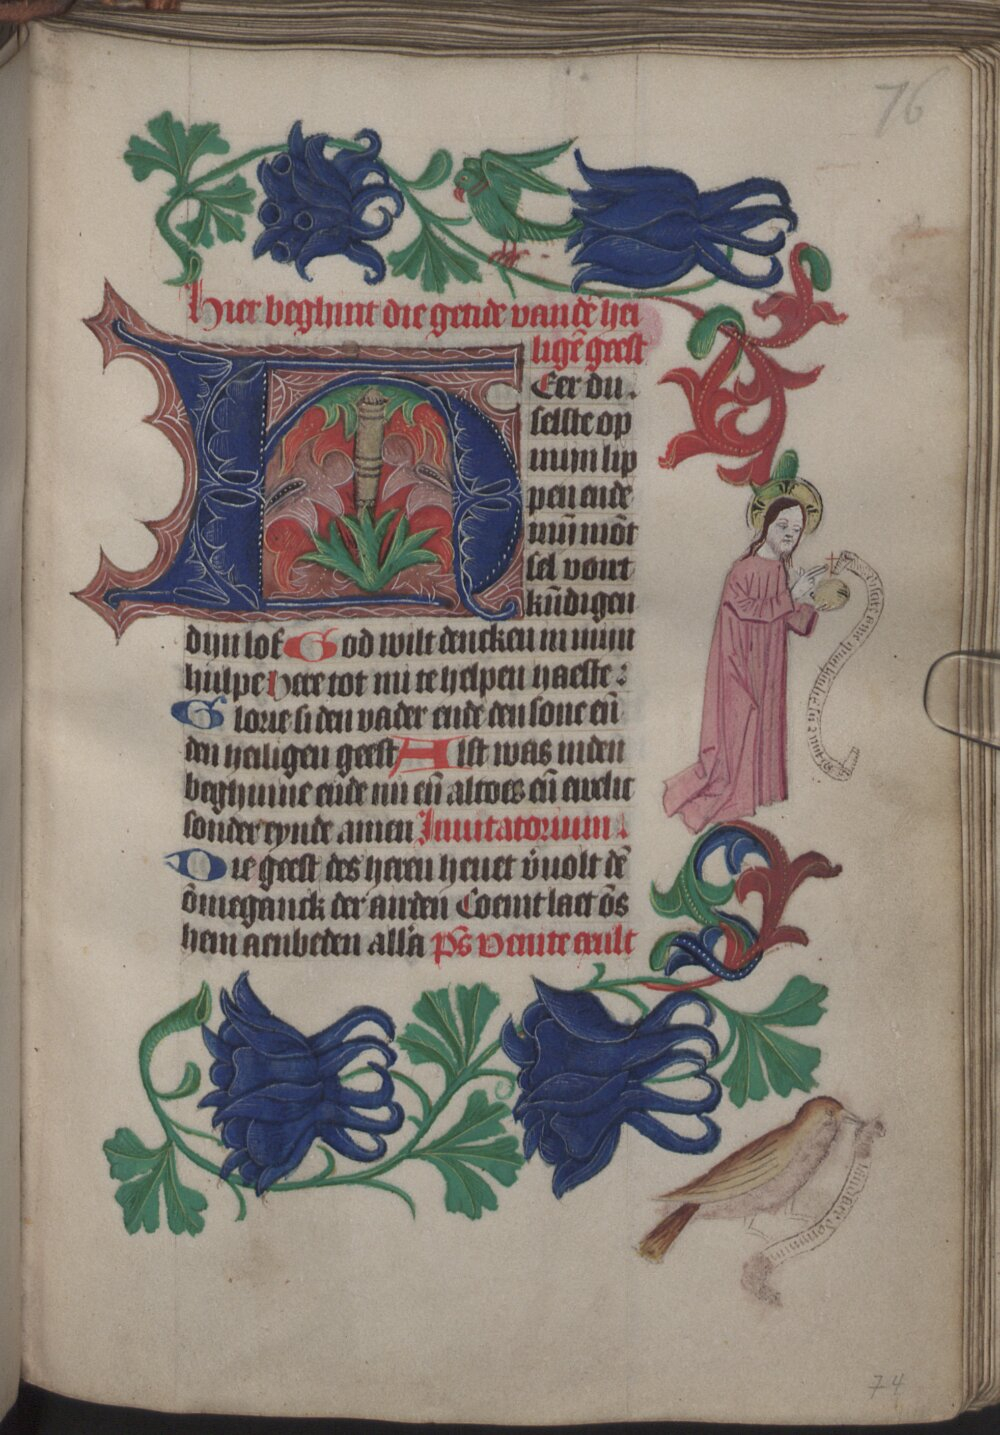 76
Hier beghint die getide vande hei
ligē geest
Eer du
selste op
minn lip
pen ende
mijn mōt
sel vont
kūdigen
dijn lof God wilt dencken in mijn
hulpe here tot mi te helpen haeste :
Glorie si den vader ende den sone eñ
den heiligen geest Alst was inden
beghinne ende nu eñ altoes eñ ewelic
sonder eynde amen Invitatorium :
Die geest des heren hevet v̄volt dē
ōmeganck der airden Coemt laet ōs
hem aenbeden all'a p̄s venite exult
Discite a me quia mitis sum
laudate dominum
74